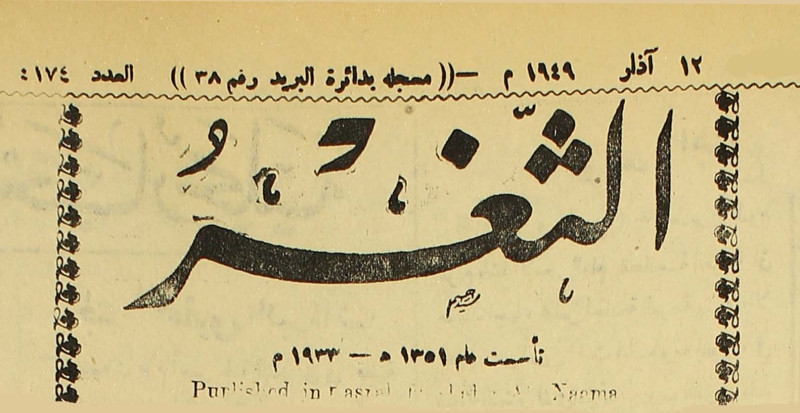 ١٢ آذار ١٩٤٩ م —(( مسجله بدائرة البريد رقم ٣٨ )) العدد ١٧٤:
الثَّغْرُ
تأسست عام ١٣٥١ هـ — ١٩٣٣ م
Published in Naama